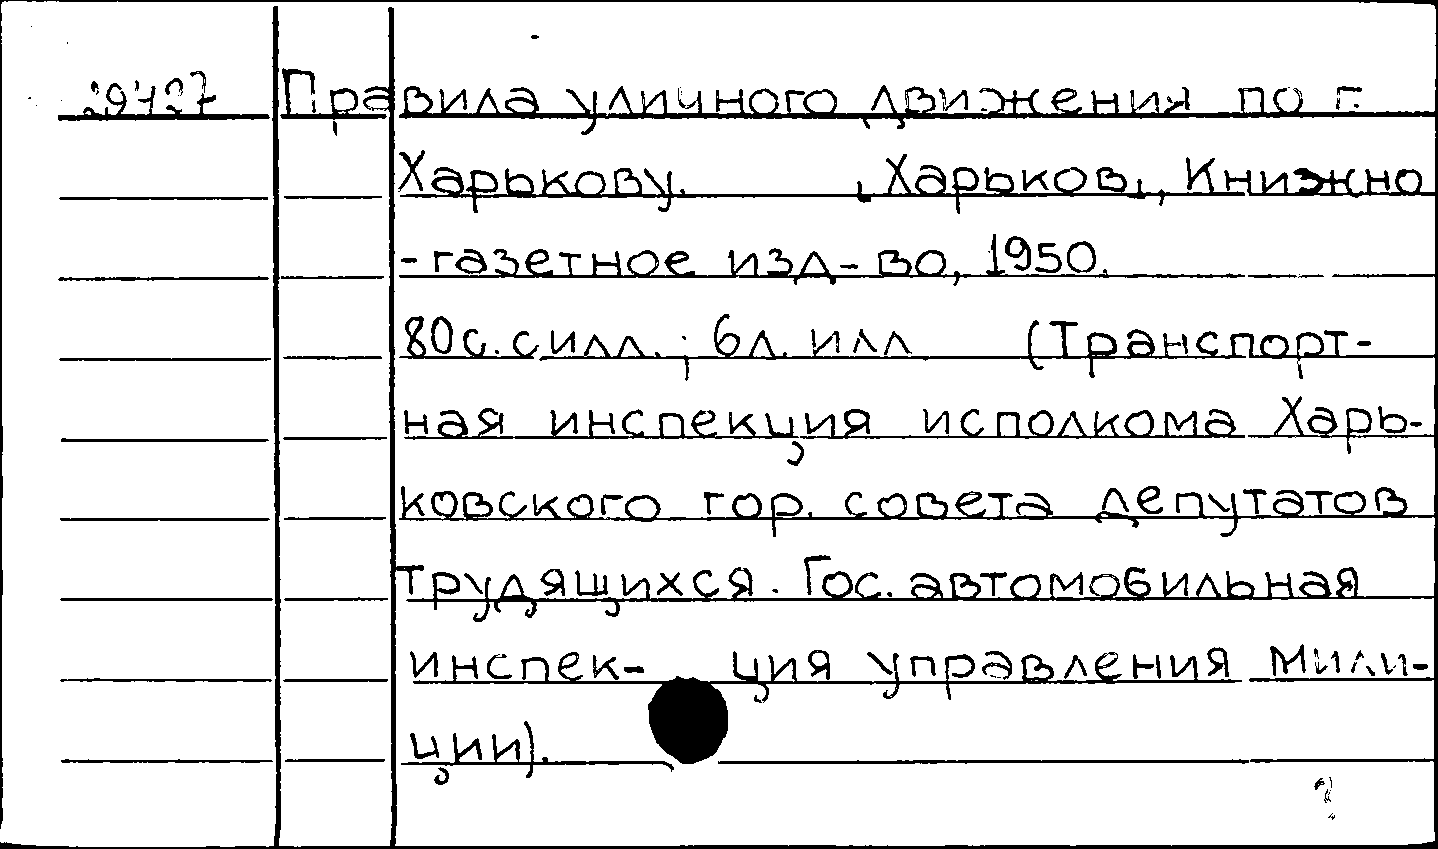 29727 Правила уличного движения по г.
Харькову. [Харьков], Книжно
-газетное изд-во, 1950.
80с. с илл.; 6л. илл (Транспорт-
ная инспекция исполкома Харь-
ковского гор. совета депутатов
трудящихся. Гос. автомобильная
инспек- ция управления мили-
ции).
?